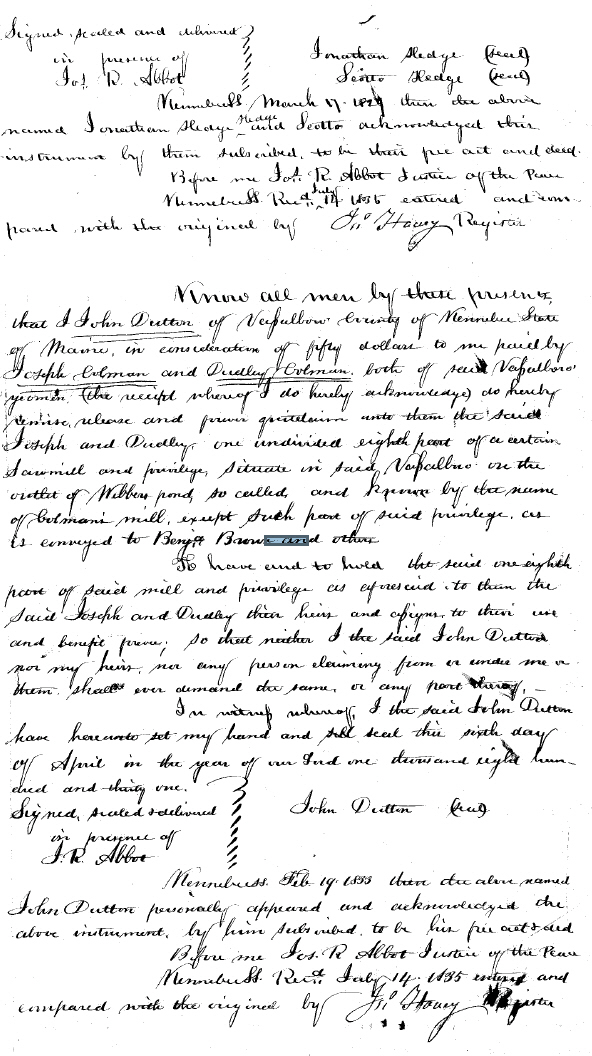 Signed, sealed and delivered
in presence of
Jos. R. Abbot
Jonathan Sledge (seal)
Scotto Sledge (seal)
Kennebec SS. March 17. 1829 then the above
named Jonathan Sledge and Scotto Sledge acknowledged this
instrument by them subscribed, to be their free act and deed.
Before me Jos. R. Abbot Justice of the Peace
Kennebec SS. Recd. July 14 1835 entered and com-
pared with the original by Jno Hovey Register
Know all men by these presents,
that I John Dutton of Vassalboro County of Kennebec State
of Maine, in consideration of fifty dollars to me paid by
Joseph Colman and Dudley Colman, both of said Vassalboro
yeomen (the receipt whereof I do hereby acknowledge) do hereby
remise, release and forever quitclaim unto them the said
Joseph and Dudley, one undivided eighth part of a certain
Sawmill and privilege, situate in said, Vassalboro on the
outlet of Webber pond, so called, and known by the name
of Colman's mill, except such part of said privilege, as
is conveyed to Benj. Brown and others
To have and to hold the said one eighth
part of said mill and privilege as aforesaid to them the
said Joseph and Dudley their heirs and assigns, to their use
and benefit forever; so that neither I the said John Dutton
nor my heirs, nor any person claiming from or under me or
them shall ever demand the same, or any part thereof, –
In witness whereof, I the said John Dutton
have hereunto set my hand and seal this sixth day
of April in the year of our Lord one thousand eight hun-
dred and thirty one.
Signed, sealed & delivered
in presence of
J. R. Abbot
John Dutton (seal)
Kennebec SS. Feb. 19. 1833 then the above named
John Dutton personally appeared and acknowledged the
above instrument, by him subscribed, to be his free act & deed
Before me Jos. R. Abbot Justice of the Peace
Kennebec SS. Recd. July 14. 1835 entered and
compared with the original by Jno Hovey Register